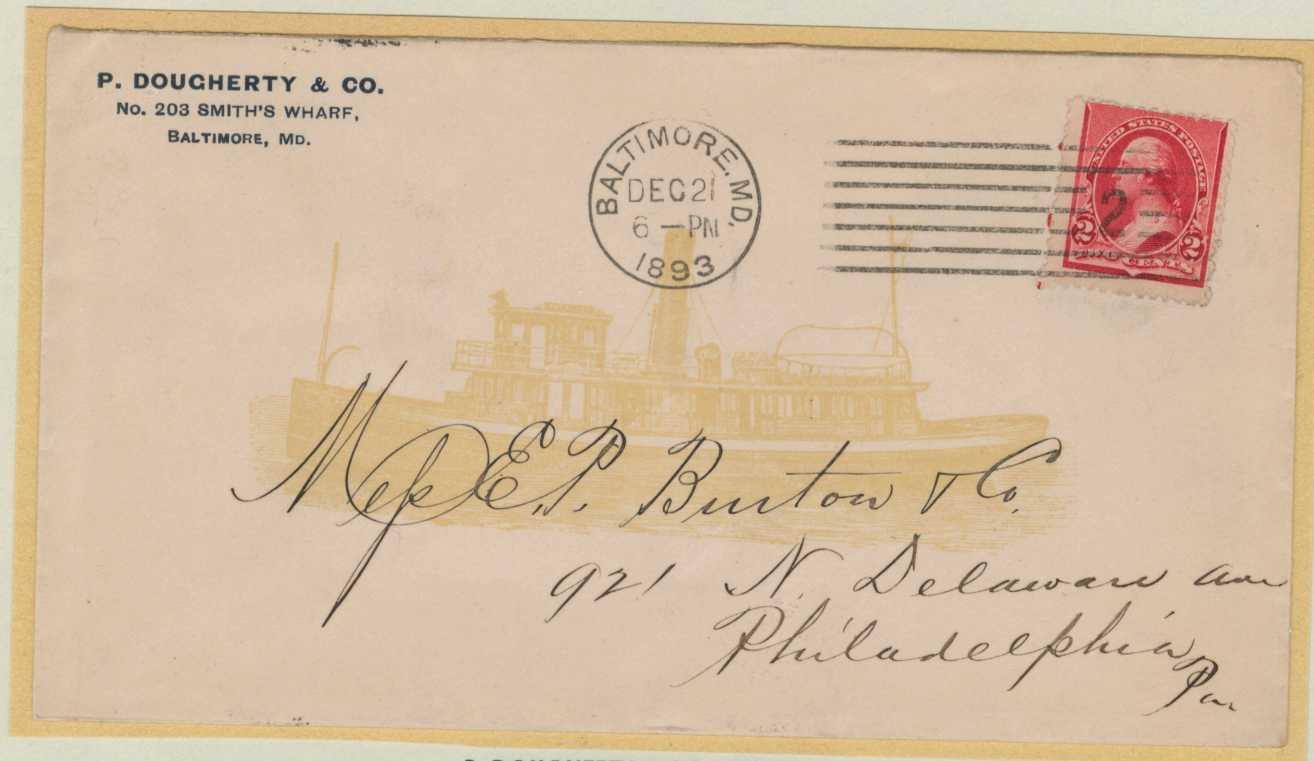 P. DOUGHERTY & CO.
No. 203 SMITH'S WHARF,
BALTIMORE, MD.
BALTIMORE, MD.
DEC 21
6 – PM
1893
UNITED STATES POSTAGE
2
2 2
TWO CENTS
E. P. Burton & Co.
921 N. Delaware Ave
Philadelphia
Pa